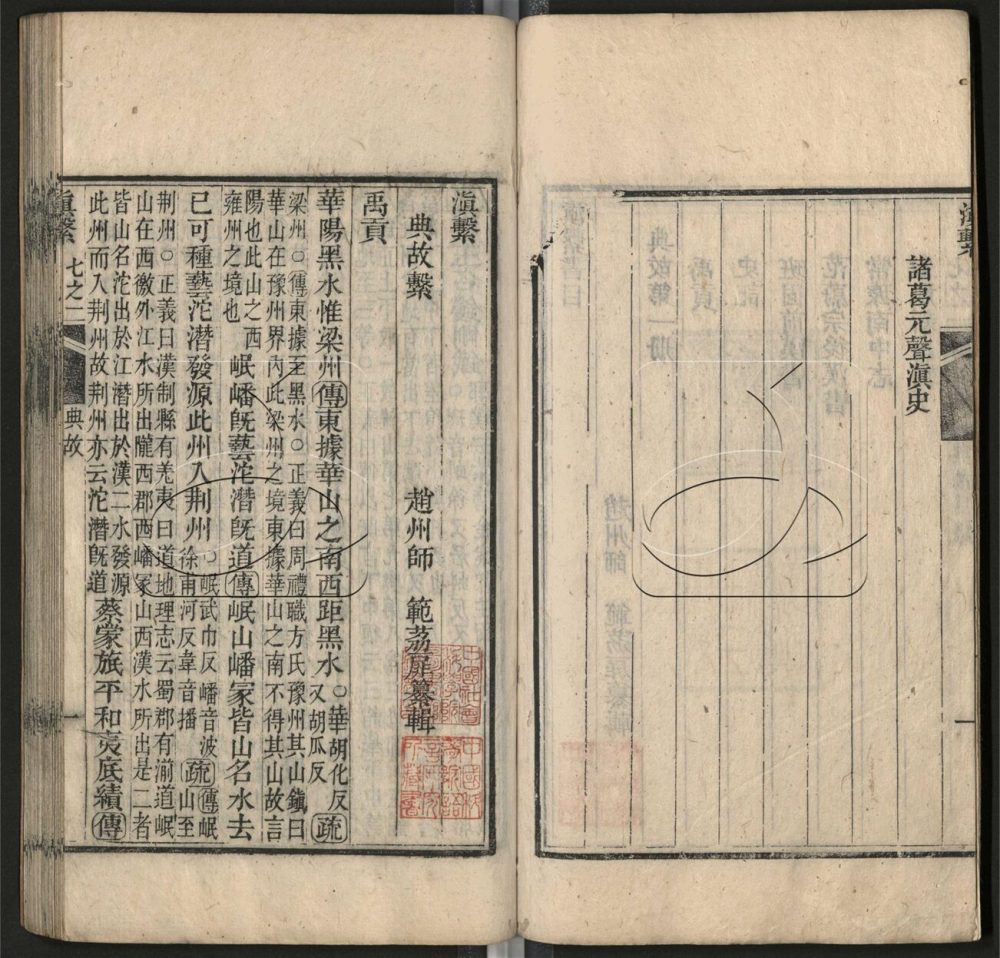 諸葛元聲滇史
滇繫
典故繫
趙州師 範荔扉纂輯
禹貢
華陽黑水惟梁州傳東據華山之南西距黑水○華胡化反又胡瓜反疏
梁州○傳東據至黑水○正義曰周禮職方氏豫州其山鎮曰
華山在豫州界內此梁州之境東據華山之南不得其山故言
陽也此山之西雍州之境也
岷嶓旣藝沱潛旣道傳岷山嶓冢皆山名水去
已可種藝沱潛發源此州入荆州○岷武巾反嶓音波徐甫河反韋音播疏傳岷山至
荆州○正義曰漢制縣有羌夷曰道地理志云蜀郡有湔道岷
山在西徼外江水所出隴西郡西嶓冢山西漢水所出是二者
皆山名沱出於江潛出於漢二水發源
此州而入荆州故荆州亦云沱潛旣道
蔡蒙旅平和夷厎績傳
滇繫 七之一 典故 一